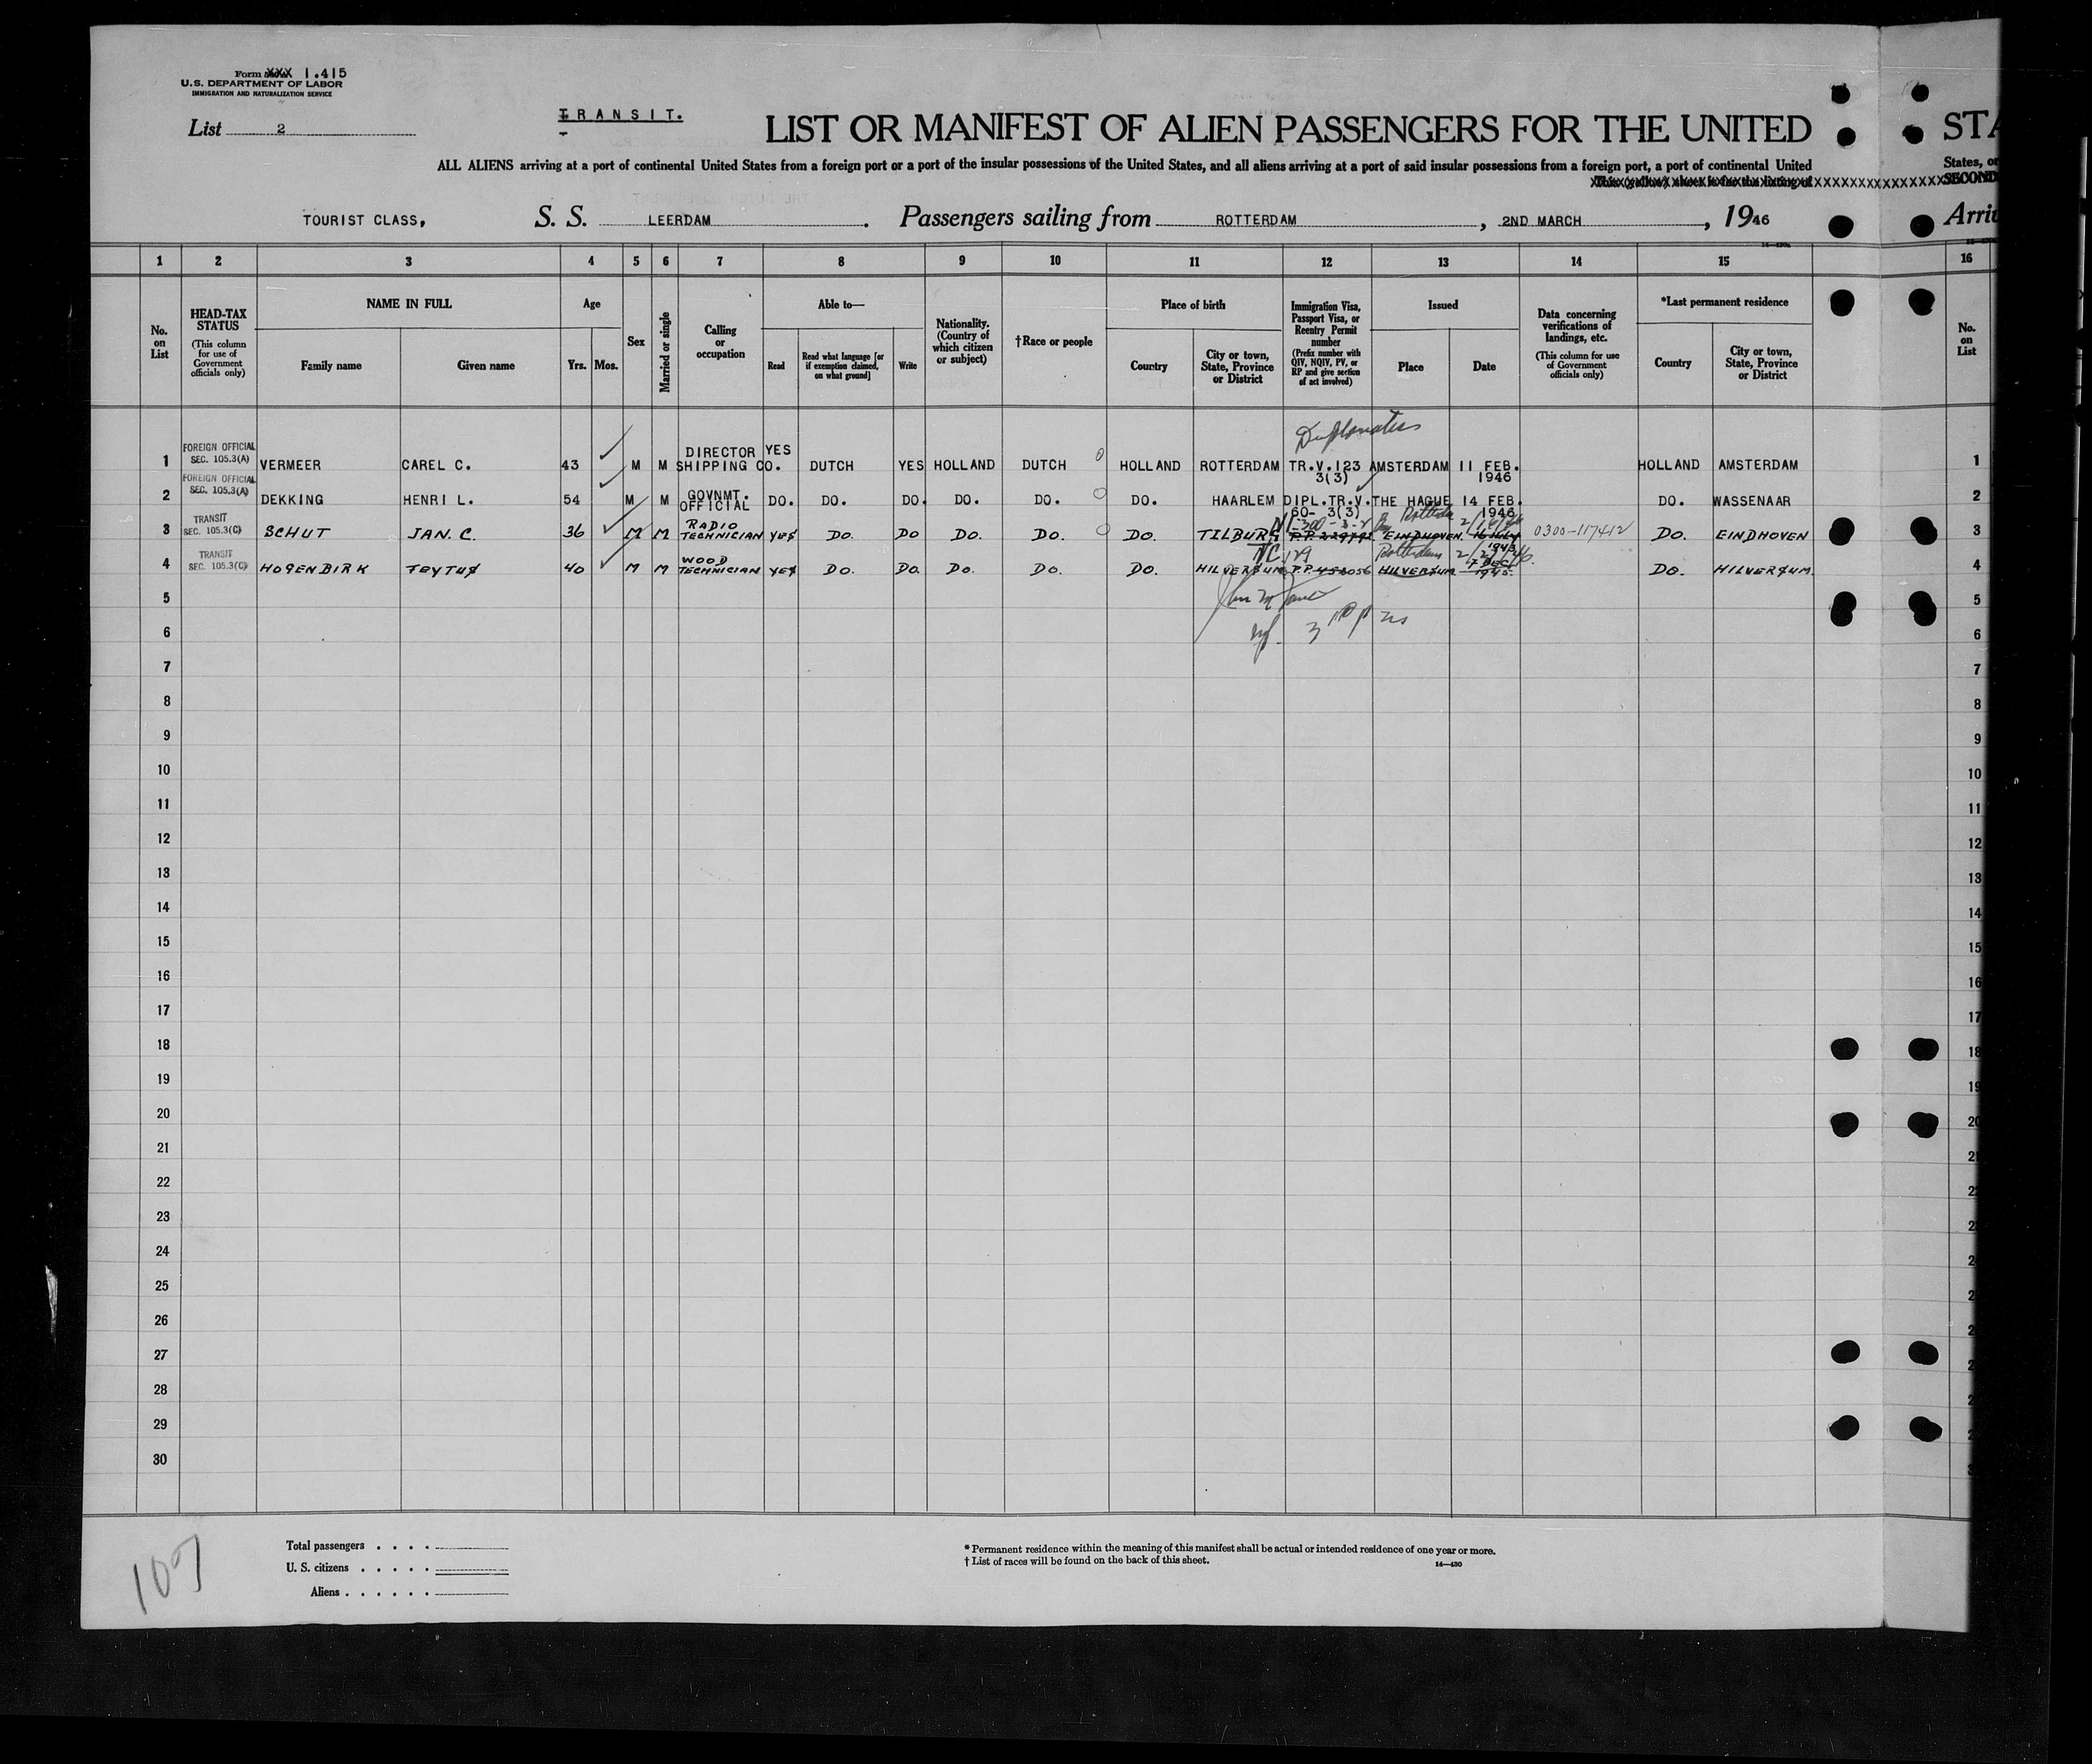 Form XXX 1.415
U.S. DEPARTMENT OF LABOR
IMMIGRATION AND NATURALIZATION SERVICE
List 2
TRANSIT.
LIST OR MANIFEST OF ALIEN PASSENGERS FOR THE UNITED STA
ALL ALIENS arriving at a port of continental United States from a foreign port or a port of the insular possessions of the United States, and all aliens arriving at a port of said insular possessions from a foreign port, a port of continental United States, or
This (yellow) sheet is for the listing of SECOND
TOURIST CLASS, S. S. LEERDAM. Passengers sailing from ROTTERDAM, 2ND MARCH, 1946 Arri
1 2 3 4 5 6 7 8 9 10 11 12 13 14 15 16
No. on List
HEAD-TAX STATUS (This column for use of Government officials only)
NAME IN FULL
Family name Given name
Age
Yrs. Mos.
Sex
Married or single
Calling or occupation
Able to—
Read Read what language [or if exemption claimed, on what ground] Write
Nationality. (Country of which citizen or subject)
†Race or people
Place of birth
Country City or town, State, Province or District
Immigration Visa, Passport Visa, or Reentry Permit number (Prefix number with QIV, NQIV, PV, or RP and give section of act involved)
Issued
Place Date
Data concerning verifications of landings, etc. (This column for use of Government officials only)
*Last permanent residence
Country City or town, State, Province or District
No. on List
Diplomatics
1 FOREIGN OFFICIAL SEC. 105.3(A) VERMEER CAREL C. 43 M M DIRECTOR SHIPPING CO. YES DUTCH YES HOLLAND DUTCH HOLLAND ROTTERDAM TR.V.123 3(3) AMSTERDAM 11 FEB. 1946 HOLLAND AMSTERDAM 1
2 FOREIGN OFFICIAL SEC. 105.3(A) DEKKING HENRI L. 54 M M GOVNMT. OFFICIAL DO. DO. DO. DO. DO. DO. HAARLEM DIPL.TR.V. 60- 3(3) THE HAGUE 14 FEB. 1946 DO. WASSENAAR 2
3 TRANSIT SEC. 105.3(C) SCHUT JAN. C. 36 M M RADIO TECHNICIAN YES DO. DO DO. DO. DO. TILBURG EINDHOVEN. 0300-117412 DO. EINDHOVEN 3
4 TRANSIT SEC. 105.3(C) HOGENBIRK TEYTUS 40 M M WOOD TECHNICIAN YES DO. DO. DO. DO. DO. HILVERSUM P.P.452056 Rotterdam HILVERSUM 7 DEC. 1945. DO. HILVERSUM. 4
5 5
6 6
7 7
8 8
9 9
10 10
11 11
12 12
13 13
14 14
15 15
16 16
17 17
18 18
19 19
20 20
21
22
23
24
25
26
27
28
29
30
107
Total passengers
U. S. citizens
Aliens
* Permanent residence within the meaning of this manifest shall be actual or intended residence of one year or more.
† List of races will be found on the back of this sheet.